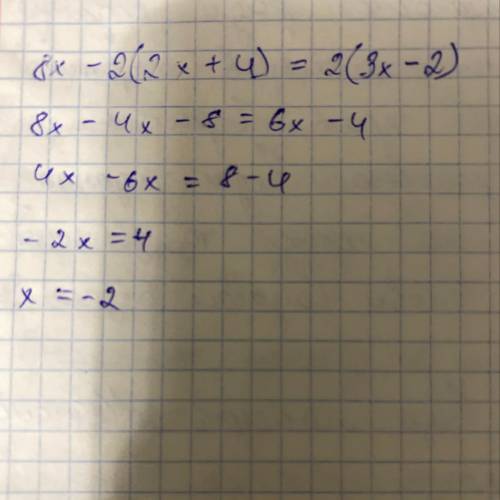 8x - 2(2x + 4) = 2(3x - 2)
8x - 4x - 8 = 6x - 4
4x - 6x = 8 - 4
- 2x = 4
x = -2